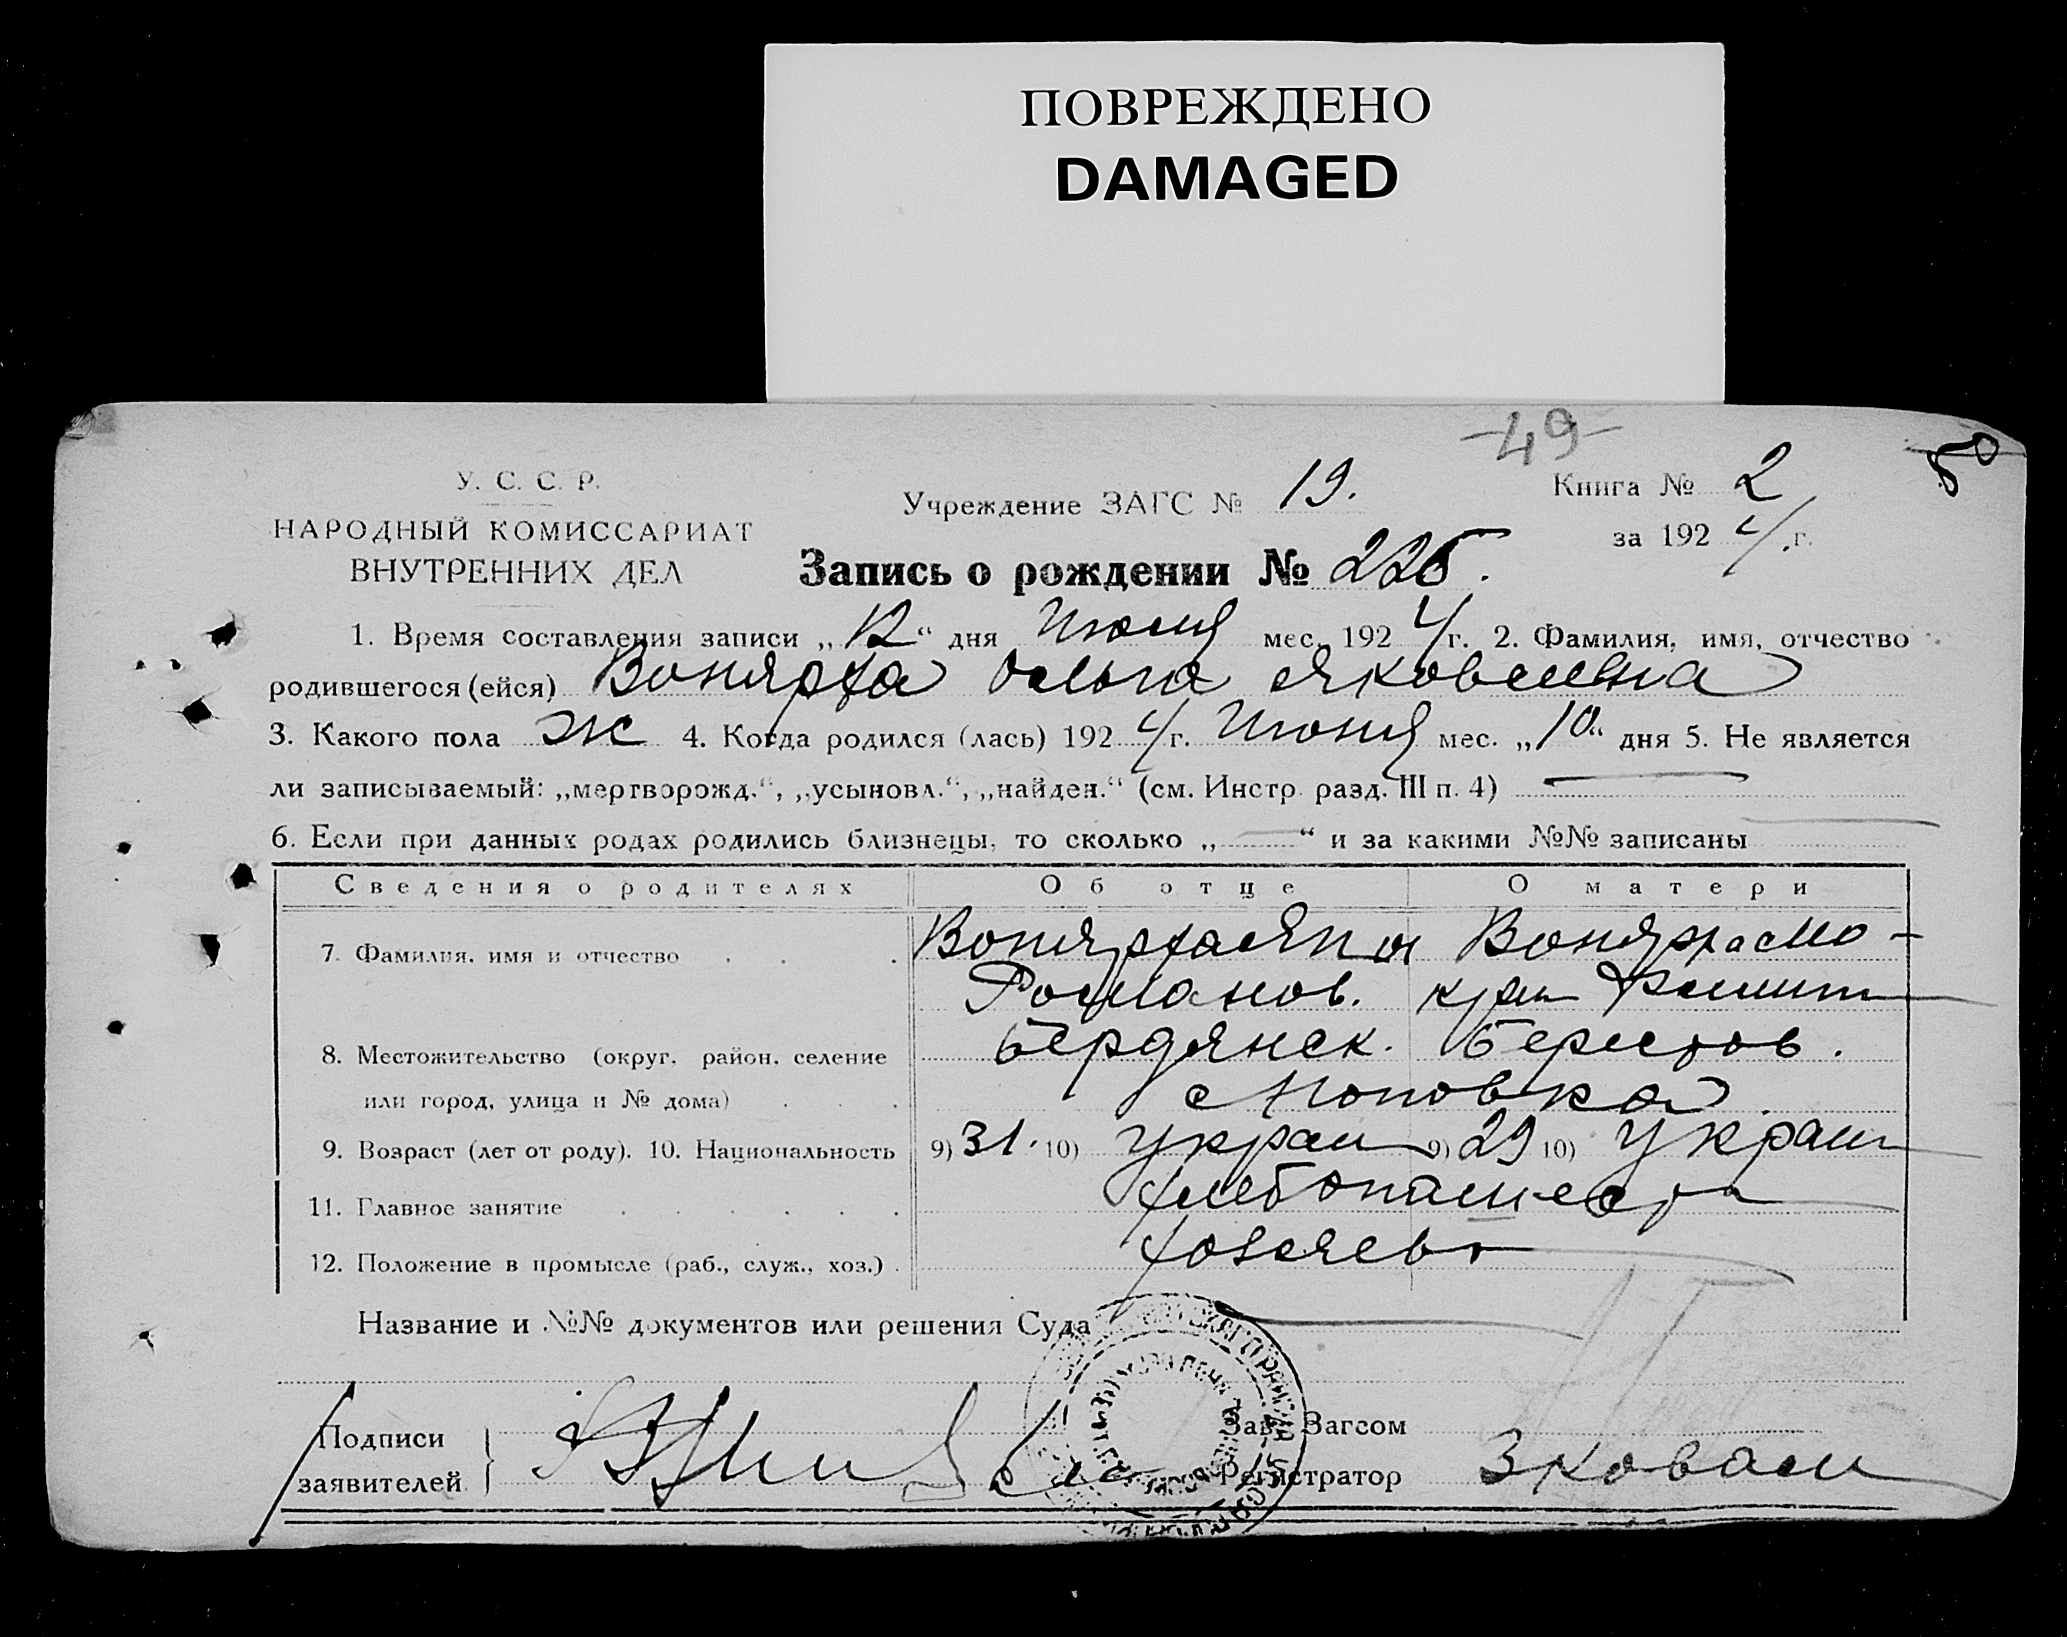 ПОВРЕЖДЕНО
DAMAGED
49
50
У. С. С. Р.
НАРОДНЫЙ КОМИССАРИАТ
ВНУТРЕННИХ ДЕЛ
Учреждение ЗАГС № 19.
Книга № 2
за 1924 г.
Запись о рождении № 225.
1. Время составления записи „12“ дня Июня мес. 1924 г. 2. Фамилия, имя, отчество
родившегося (ейся) Вонярха Ольга Яковлевна
3. Какого пола Ж 4. Когда родился (лась) 1924 г. Июня мес. „10“ дня 5. Не является
ли записываемый: „мертворожд.“, „усыновл.“, „найден.“ (см. Инстр. разд. III п. 4) —
6. Если при данных родах родились близнецы, то сколько „—“ и за какими №№ записаны —
Сведения о родителях Об отце О матери
7. Фамилия, имя и отчество Вонярха Вонярха
Романов.
8. Местожительство (округ, район, селение Бердянск. Берестов.
или город, улица и № дома)
9. Возраст (лет от роду). 10. Национальность 9) 31. 10) украин 9) 29 10) украин
11. Главное занятие хлебопашество
12. Положение в промысле (раб., служ., хоз.)
Название и №№ документов или решения Суда
Подписи
заявителей
Зав. Загсом
Регистратор